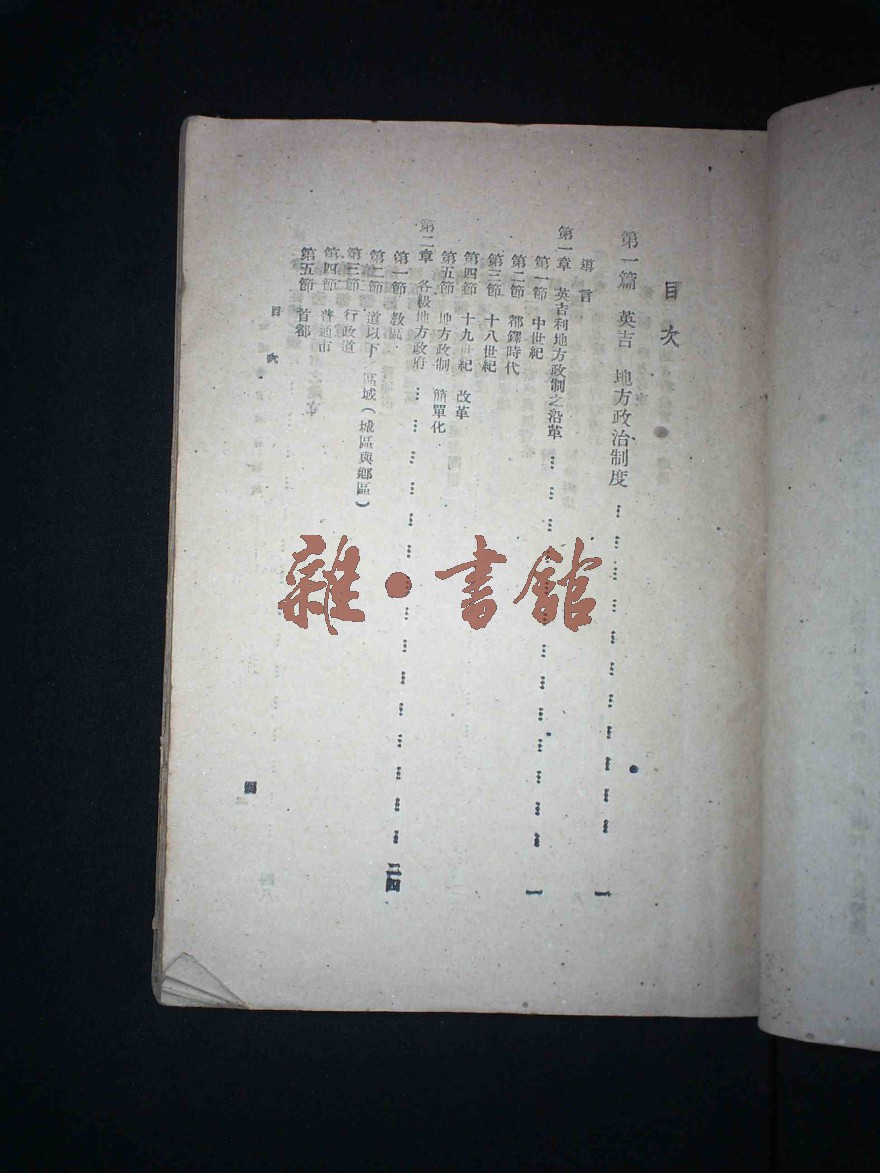 目次
第一篇 英吉 地方政治制度 …………………………………… 一
導言
第一章 英吉利地方政制之沿革 …………………………………… 一
第一節 中世紀
第二節 都鐸時代
第三節 十八世紀
第四節 十九世紀 改革
第五節 地方政制 簡單化
第二章 各級地方政府 …………………………………… 二四
第一節 教區
第二節 道以下 區域(城區與鄉區)
第三節 行政道
第四節 普通市
第五節 首都
目次
雜·書館